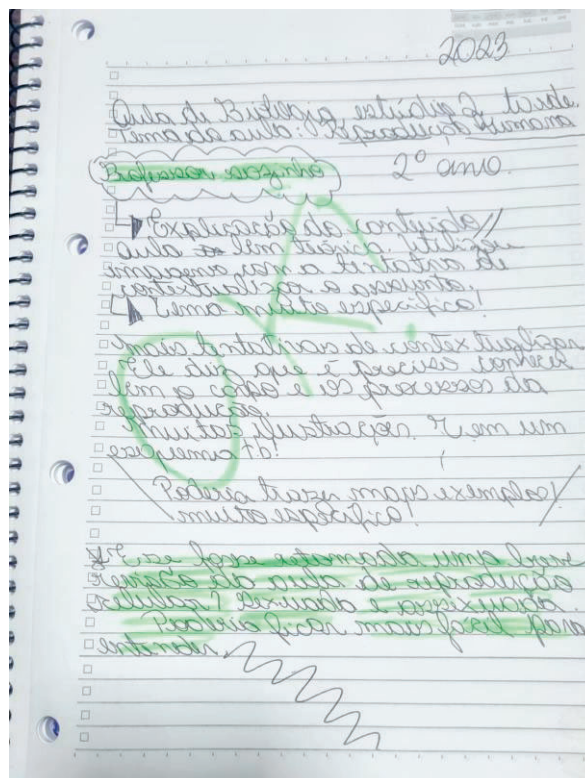 2023
Aula de Biologia estúdio 2 tarde
Tema da aula: Reprodução Humana
Professor sozinho 2º ano.
Explicação do conteúdo
aula bem teórica. utilizou
imagens com a tentativa de
contextualizar o assunto.
Tema muito específico!
OK.
tentativas de contextualizar
Ele diz que é preciso conhecer
bem o corpo e os processos da
reprodução.
muitas ilustrações. Nem um
experimento!
Poderia trazer mais exemplos!
muito específico!
E se fosse retomada uma breve
revisão da aula de reprodução
celular? sexuada e assexuada.
Poderia ficar mais fácil para
entender.